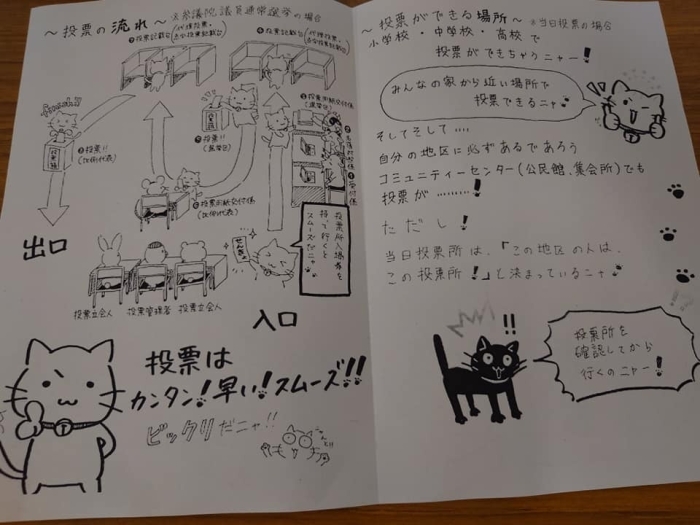 ～投票の流れ～ ※参議院議員通常選挙の場合
⑦投票記載台(代理投票・点字投票記載台)
④投票記載台(代理投票・点字投票記載台)
③投票用紙交付係(選挙区)
①受付係
⑤投票!!(選挙区)
⑧投票!!(比例代表)
投票箱
投票箱
⑥投票用紙交付係(比例代表)
投票所入場券を
持って行くと
スムーズだニャ
出口
投票立会人
投票管理者
投票立会人
入口
投票は
カンタン!早い!スムーズ!!
ビックリだニャ!!
～投票ができる場所～ ※当日投票の場合
小学校・中学校・高校で
投票ができちゃうニャー!
みんなの家から近い場所で
投票できるニャ
そしてそして……
自分の地区に必ずあるであろう
コミュニティーセンター(公民館、集会所)でも
投票が………!
ただし!
当日投票所は、「この地区の人は、
この投票所!」と決まっているニャ
!!
投票所を
確認してから
行くのニャー!